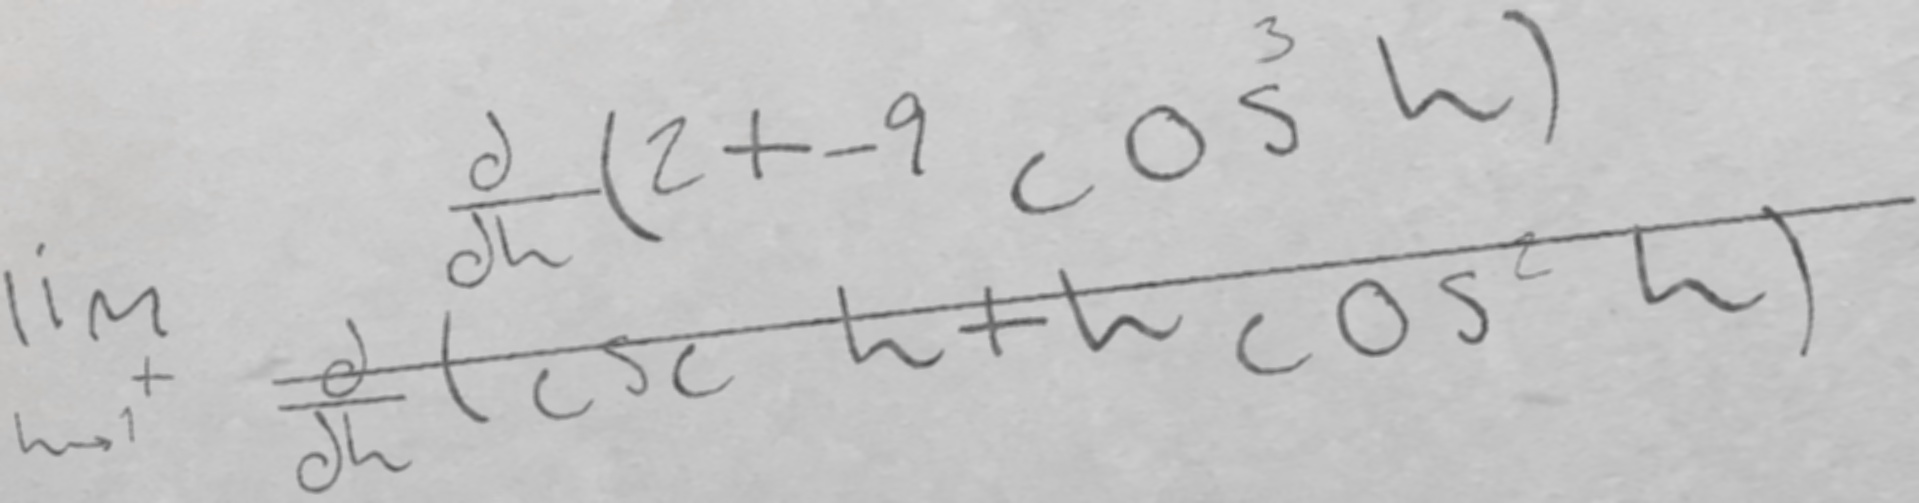 \lim_{h \to 1^+} \frac{\frac{d}{dh}(2+-9\cos^3 h)}{\frac{d}{dh}(\csc h+h\cos^2 h)}